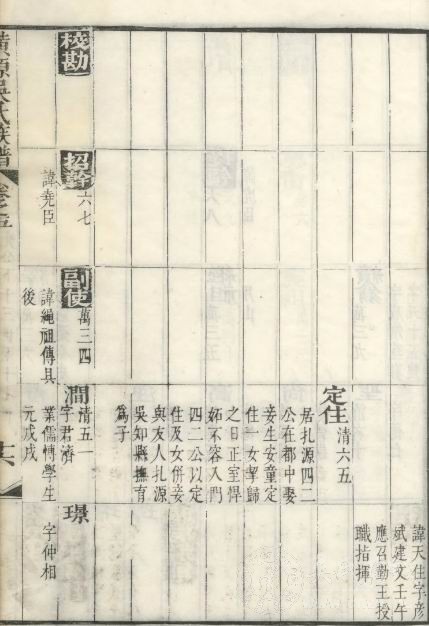 諱天住字彥
斌建文壬午
應召勤王授
職指揮
定住
清六五
居扎源四二
公在都中娶
妾生安童定
住一女挈歸
之日正室悍
妬不容入門
四二公以定
住及女併妾
與友人扎源
吳知縣撫育
爲子
校勘
招幹
六七
諱堯臣
副使
萬三四
諱繩祖傳具
後
澗
清五一
字君濟
業儒轉學生
元戊戌
璟
字仲相
源吳氏族譜
卷之五
十六